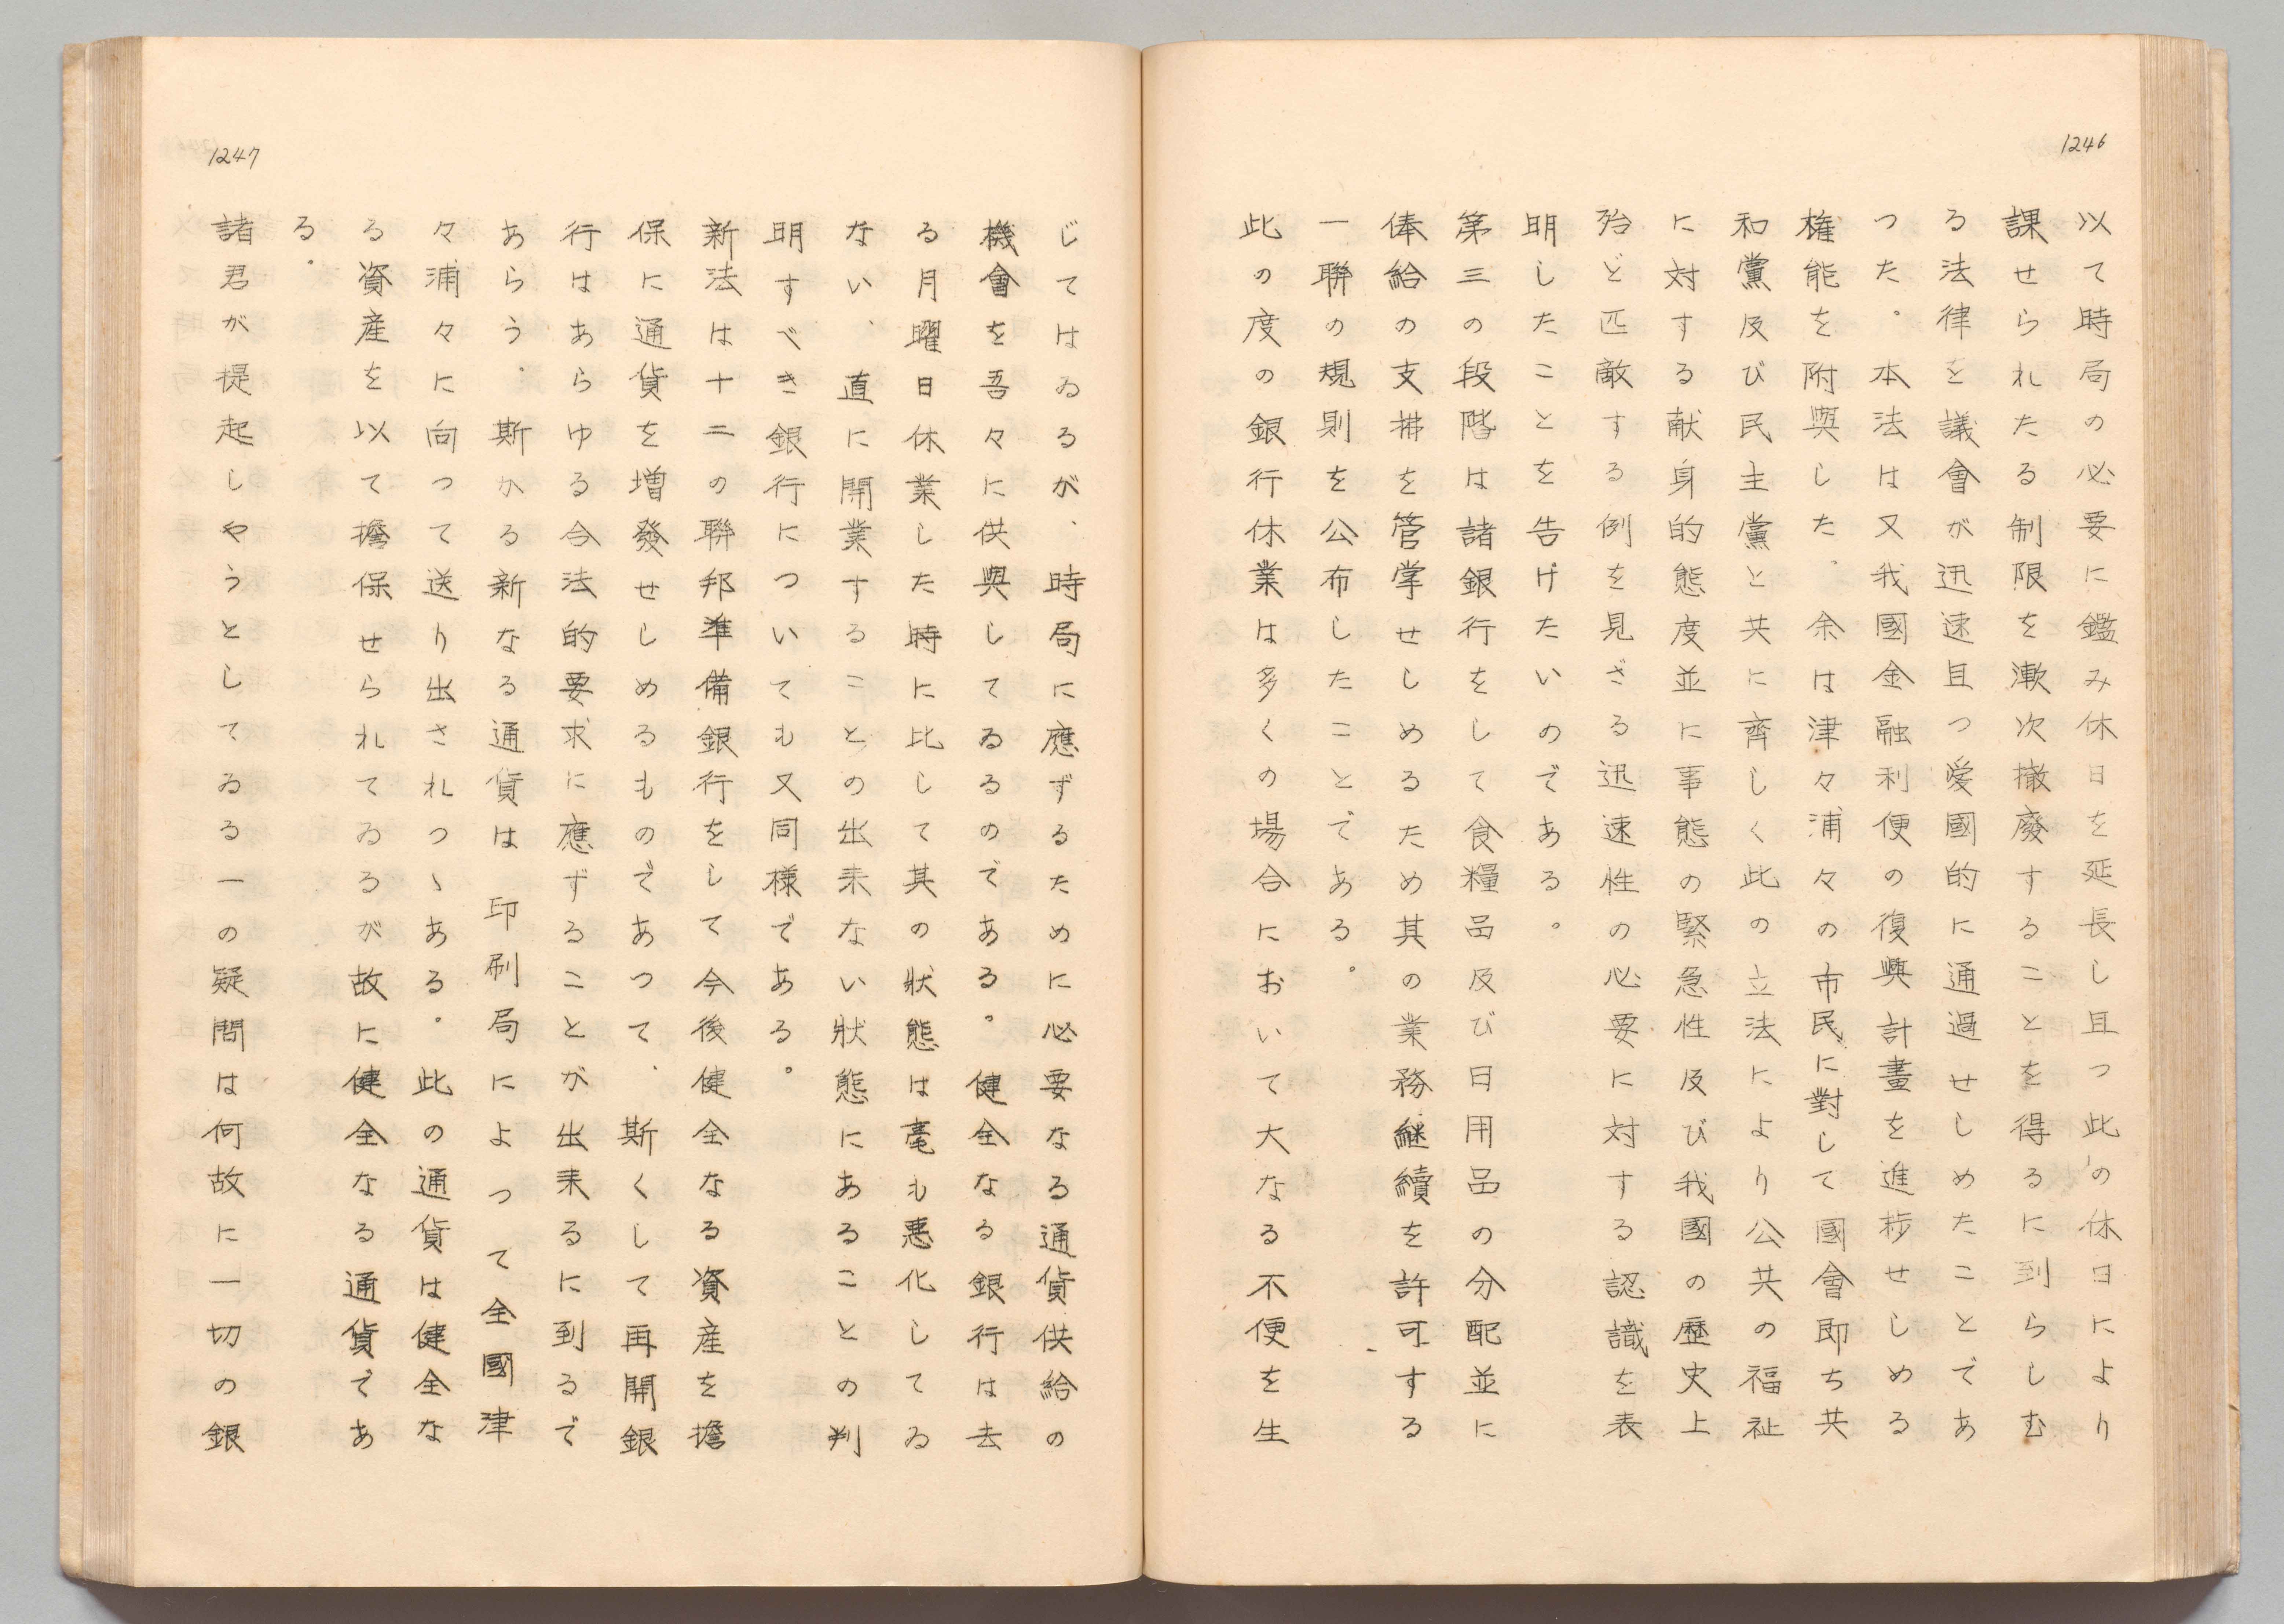 1246
以て時局の必要に鑑み休日を延長し且つ此の休日により
課せられたる制限を漸次撤廢することを得るに到らしむ
る法律を議會が迅速且つ愛國的に通過せしめたことであ
つた。本法は又我國金融利便の復興計畫を進捗せしめる
権能を附與した。余は津々浦々の市民に對して國會即ち共
和黨及び民主黨と共に齊しく此の立法により公共の福祉
に対する献身的態度並に事態の緊急性及び我國の歷史上
殆ど匹敵する例を見ざる迅速性の必要に対する認識を表
明したことを告げたいのである。
第三の段階は諸銀行をして食糧品及び日用品の分配並に
俸給の支拂を管掌せしめるため其の業務継續を許可する
一聯の規則を公布したことである。
此の度の銀行休業は多くの場合において大なる不便を生
1247
じてはゐるが、時局に應ずるために必要なる通貨供給の
機會を吾々に供與してゐるのである。健全なる銀行は去
る月曜日休業した時に比して其の狀態は毫も悪化してゐ
ない、直に開業することの出来ない狀態にあることの判
明すべき銀行についても又同様である。
新法は十二の聯邦準備銀行をして今後健全なる資産を擔
保に通貨を増發せしめるものであつて、斯くして再開銀
行はあらゆる合法的要求に應ずることが出来るに到るで
あらう。斯かる新なる通貨は印刷局によつて全國津
々浦々に向つて送り出されつゝある。此の通貨は健全な
る資産を以て擔保せられてゐるが故に健全なる通貨であ
る。
諸君が提起しやうとしてゐる一の疑問は何故に一切の銀